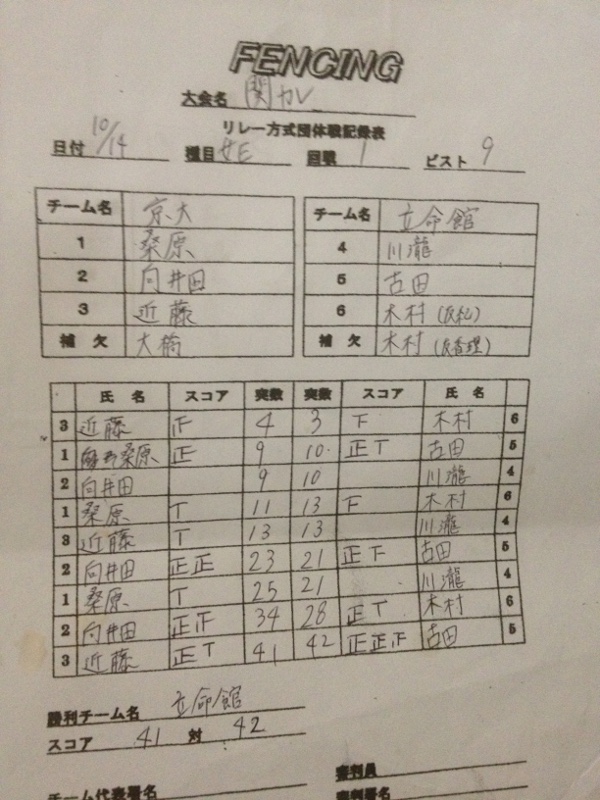 FENCING
大会名 関カレ
リレー方式団体戦記録表
日付 10/14 種目 女E 回戦 1 ピスト 9
チーム名 京大 チーム名 立命館
1 桑原 4 川瀧
2 向井田 5 古田
3 近藤 6 木村
補欠 大橋 補欠 木村
氏名 スコア 突数 突数 スコア 氏名
3 近藤 4 3 下 木村 6
1 桑原 正 9 10 正T 古田 5
2 向井田 9 10 川瀧 4
1 桑原 T 11 13 下 木村 6
3 近藤 T 13 13 川瀧 4
2 向井田 正正 23 21 正下 古田 5
1 桑原 T 25 21 川瀧 4
2 向井田 正 34 28 正T 木村 6
3 近藤 正T 41 42 正正 古田 5
勝利チーム名 立命館
スコア 41 対 42
審判員
チーム代表署名 審判署名